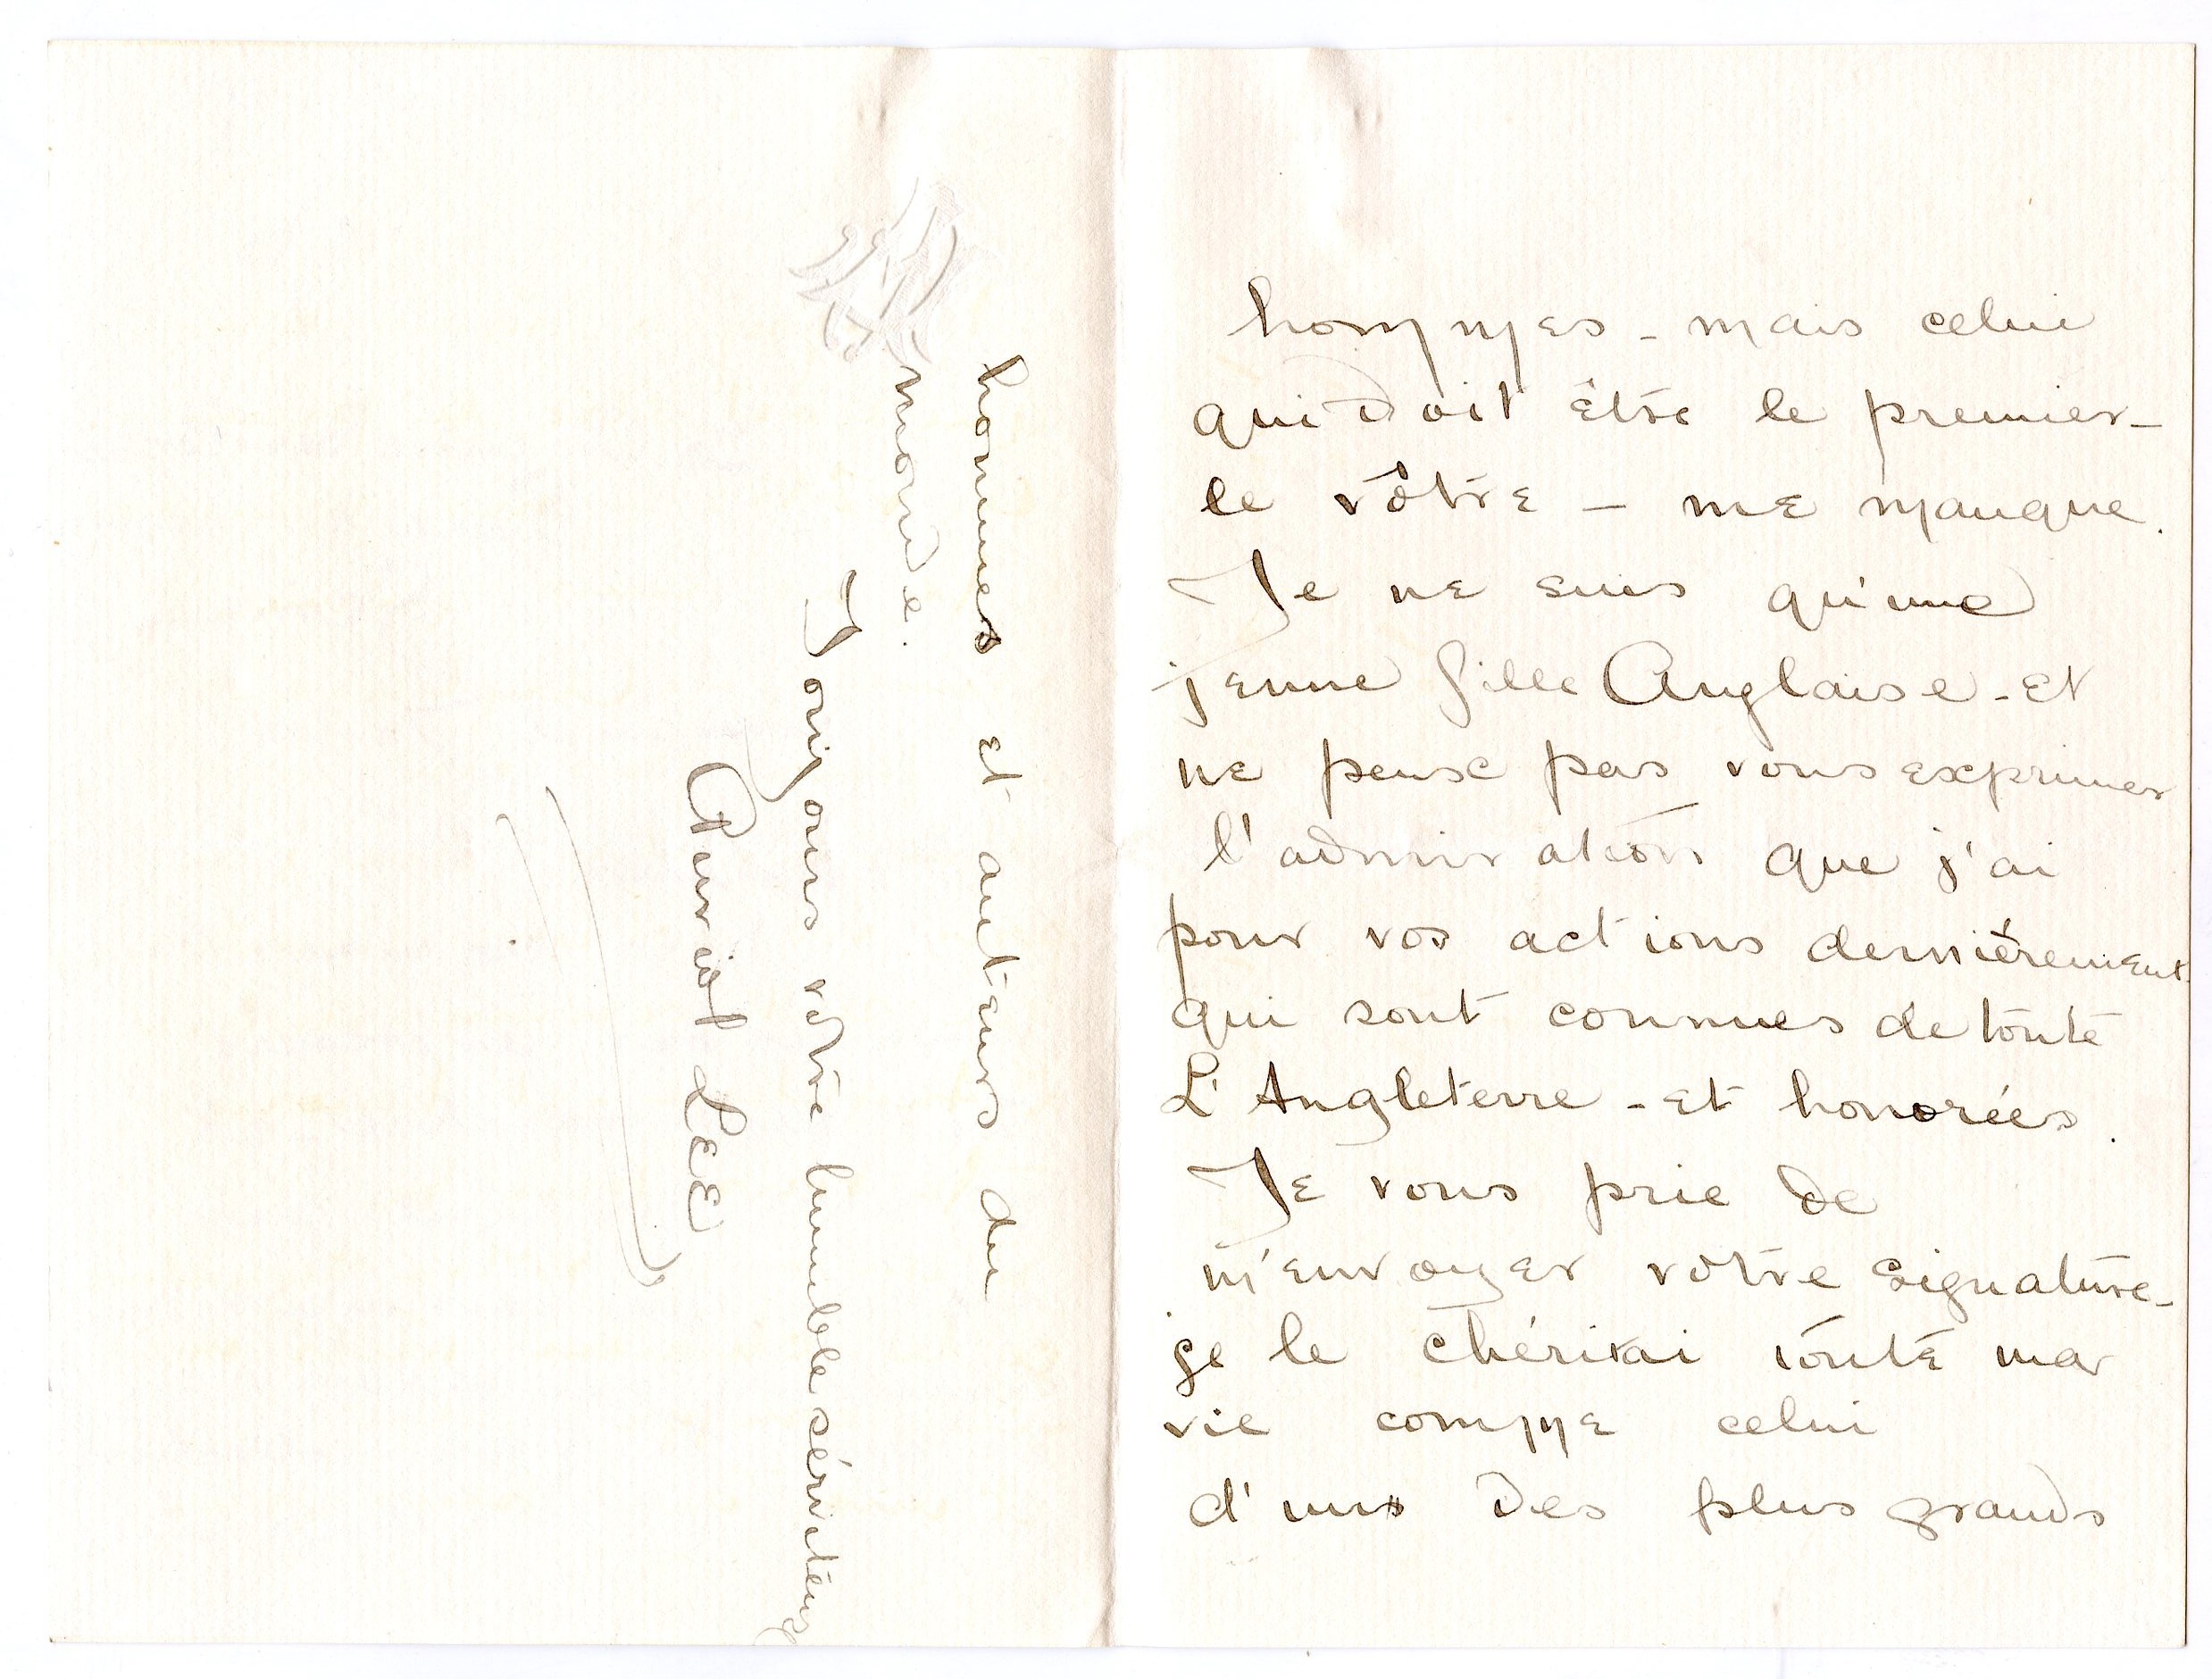 hommes - mais celui
qui doit être le premier -
le vôtre - me manque.
Je ne suis qu'une
jeune fille Anglaise - et
ne peuse pas vous exprimer
l'admiration que j'ai
pour vos actions dernièrement
qui sont connues de toute
L'Angleterre - et honorées.
Je vous prie de
m'envoyer vôtre signature -
je le chérirai toute ma
vie comme celui
d'uns des plus grands
hommes et auteurs du
monde.
Toujours vôtre humble sérviteur
Lee